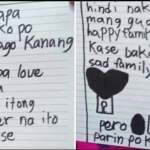 apa
ko po
ago Kanang
pa love
a
itong
er na ito
se
hindi nak
mang gu
happy famil
kase baki
sad family
pero
parin po k